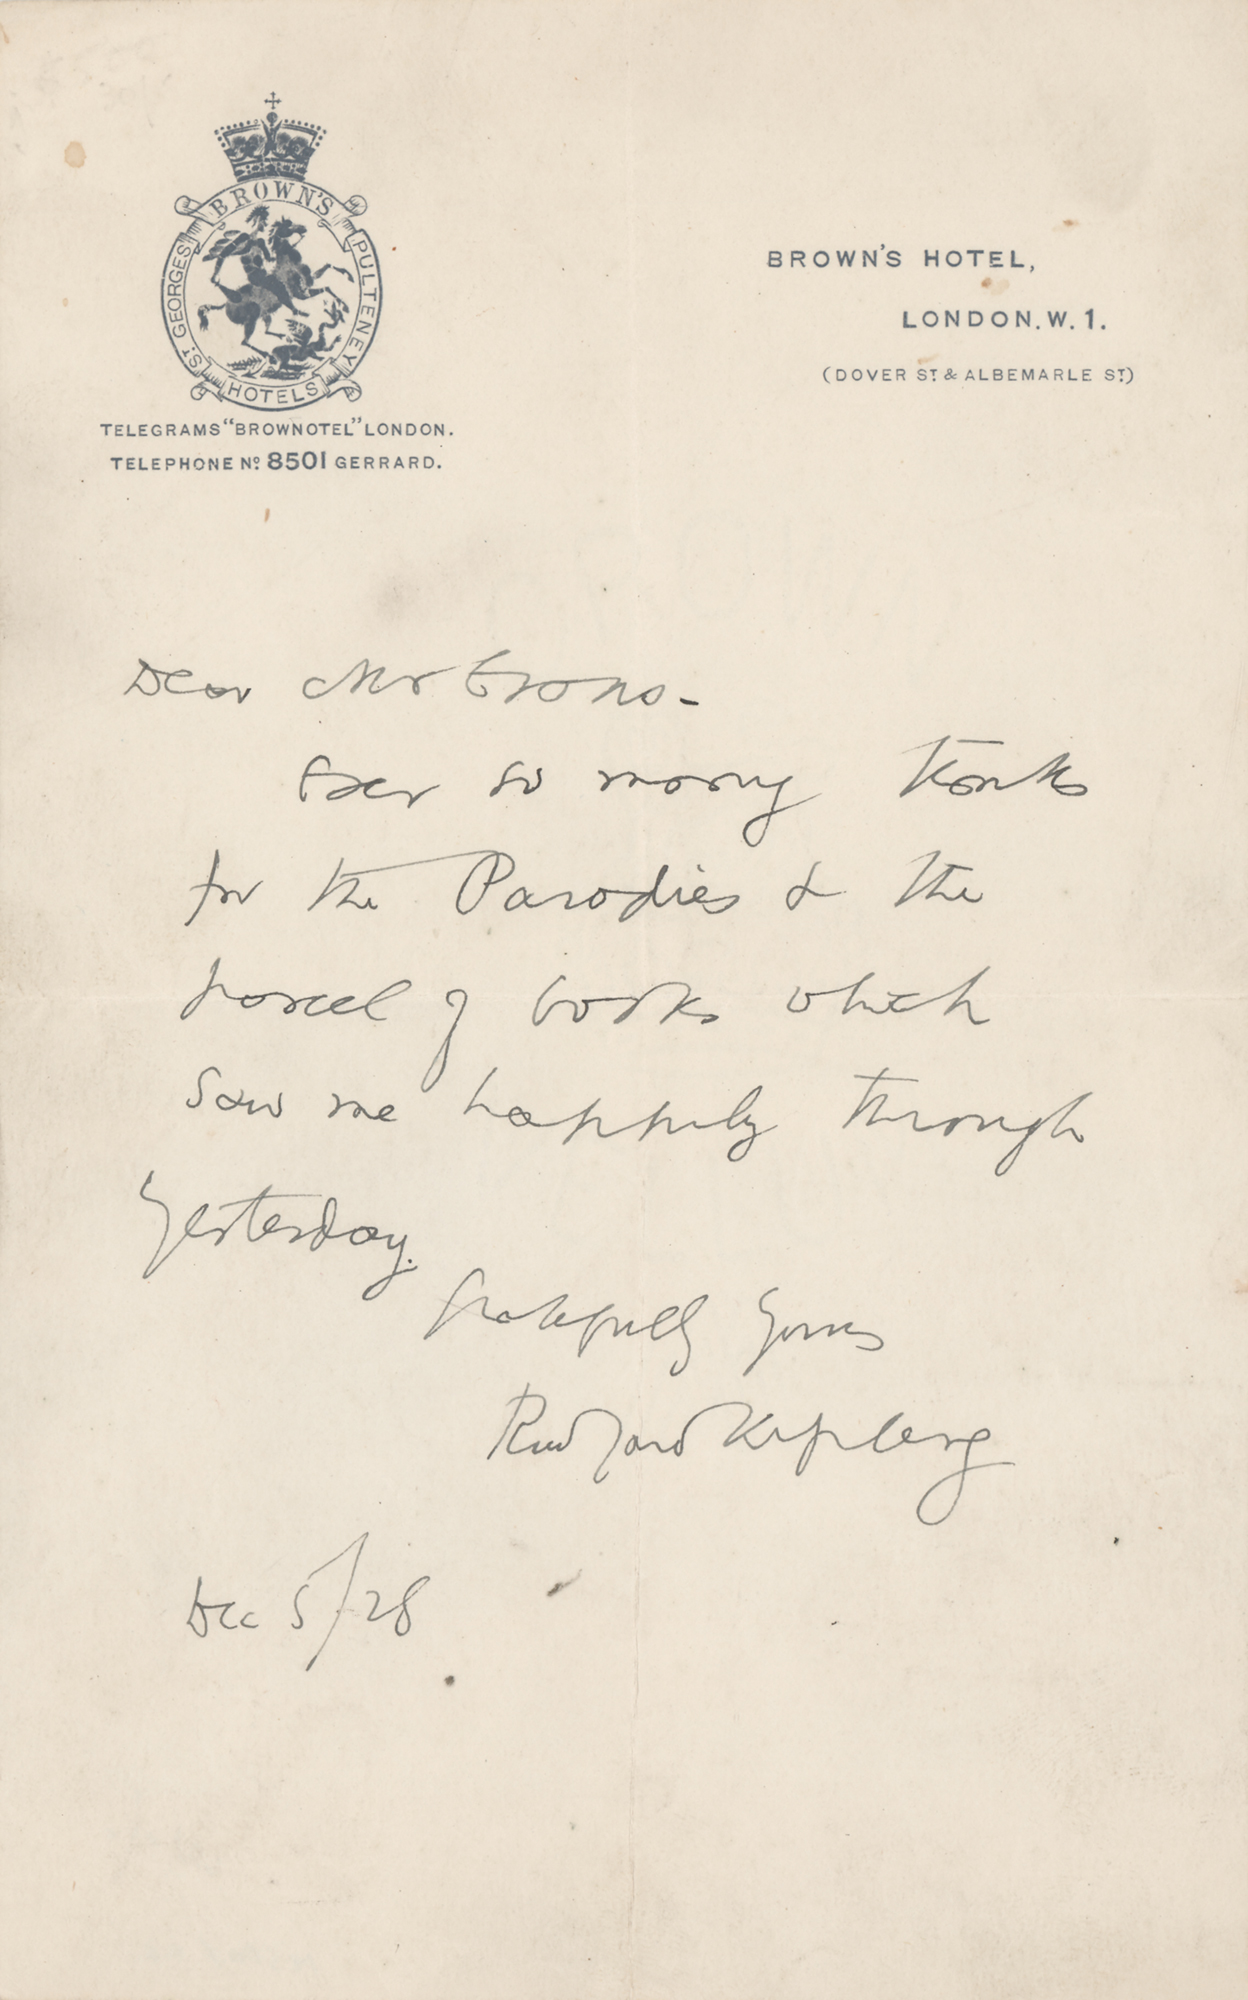 BROWN'S
ST. GEORGES
PULTENEY
HOTELS
TELEGRAMS "BROWNOTEL" LONDON.
TELEPHONE No. 8501 GERRARD.
BROWN'S HOTEL,
LONDON. W. 1.
(DOVER ST. & ALBEMARLE ST.)
Dear Mr Evans -
Ever so many thanks
for the Parodies & the
parcel of books which
saw me happily through
Yesterday.
Gratefully Yours
Rudyard Kipling
Dec 5/28